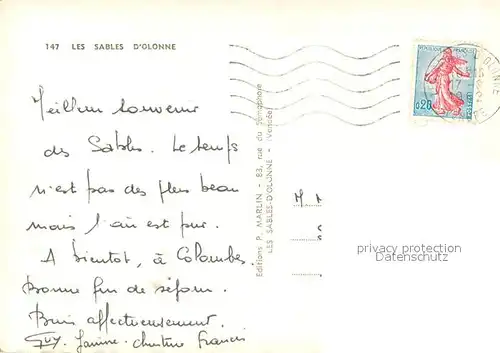 147 LES SABLES D'OLONNE
Meilleur souvenir
des Sables. Le temps
n'est pas des plus beau
mais l'air est pur.
A bientôt, à Colombes.
Bonne fin de séjour.
Bons affectueusement.
Guy Janine Christine Francis
Editions P. MARLIN - 83, rue du Sémaphore
LES SABLES-D'OLONNE - (Vendée)
0,20
OLONNE
M
privacy protection
Datenschutz